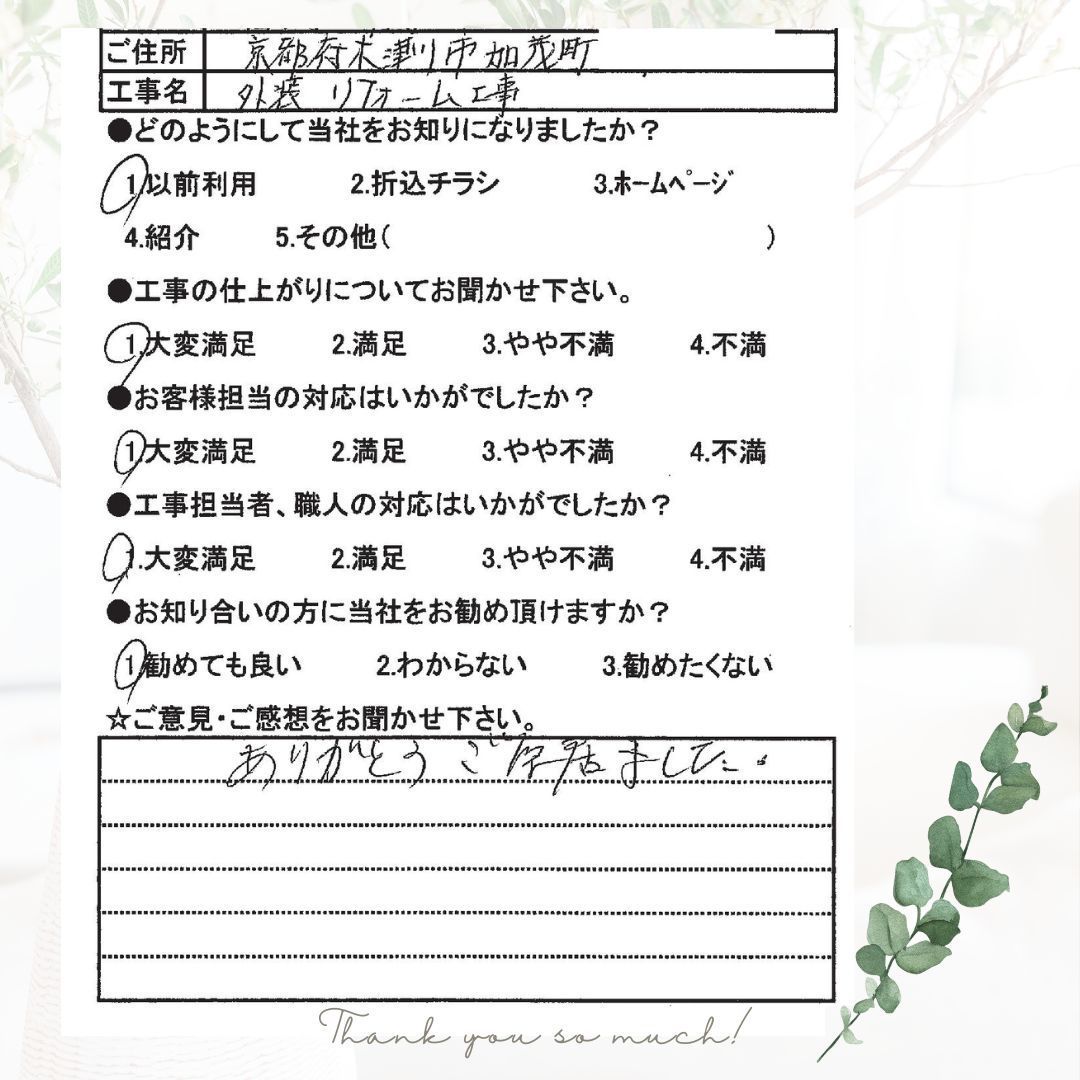 ご住所 京都府木津川市加茂町
工事名 外装リフォーム工事
●どのようにして当社をお知りになりましたか？
1.以前利用 2.折込チラシ 3.ﾎｰﾑﾍﾟｰｼﾞ
4.紹介 5.その他( )
●工事の仕上がりについてお聞かせ下さい。
1.大変満足 2.満足 3.やや不満 4.不満
●お客様担当の対応はいかがでしたか？
1.大変満足 2.満足 3.やや不満 4.不満
●工事担当者、職人の対応はいかがでしたか？
1.大変満足 2.満足 3.やや不満 4.不満
●お知り合いの方に当社をお勧め頂けますか？
1.勧めても良い 2.わからない 3.勧めたくない
☆ご意見・ご感想をお聞かせ下さい。
ありがとうございました。
Thank you so much!